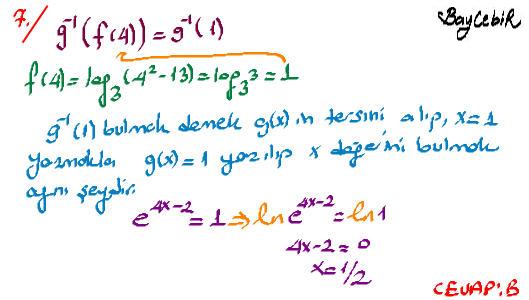 7./ g⁻¹(f(4)) = g⁻¹(1)
BayCebiR
f(4) = log₃(4²-13) = log₃3 = 1
g⁻¹(1) bulmak demek g(x) in tersini alıp, x=1
yazmakla g(x)=1 yazılıp x değerini bulmak
aynı şeydir.
e⁴ˣ⁻² = 1 ⇒ ln e⁴ˣ⁻² = ln 1
4x-2 = 0
x = 1/2
CEVAP: B